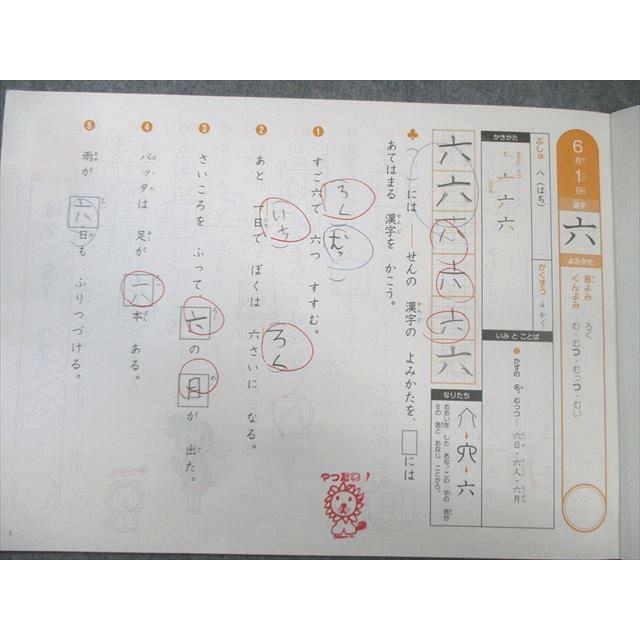 6月1日
漢字
六
よみかた
音よみ ろく
くんよみ む・むつ・むっつ・むい
ぶしゅ 八(はち)
かくすう 4かく
かきかた
いみ と ことば
❶ かずの 名。むっつ…六日・六人・六月
六 六 六 六 六 六
なりたち
六
おおいを した あな。この 字の 音が
6の 音と おなじ ことから。
♣ ( )には ――せんの 漢字の よみかたを、□には
あてはまる 漢字を かこう。
❶ すご六で 六つ すすむ。
ろく
むっ
❷ あと 一日で ぼくは 六さいに なる。
いち
ろく
❸ さいころを ふって、六の 目が 出た。
❹ バッタは 足が 六本 ある。
❺ 雨が 六日も ふりつづける。
やったね!